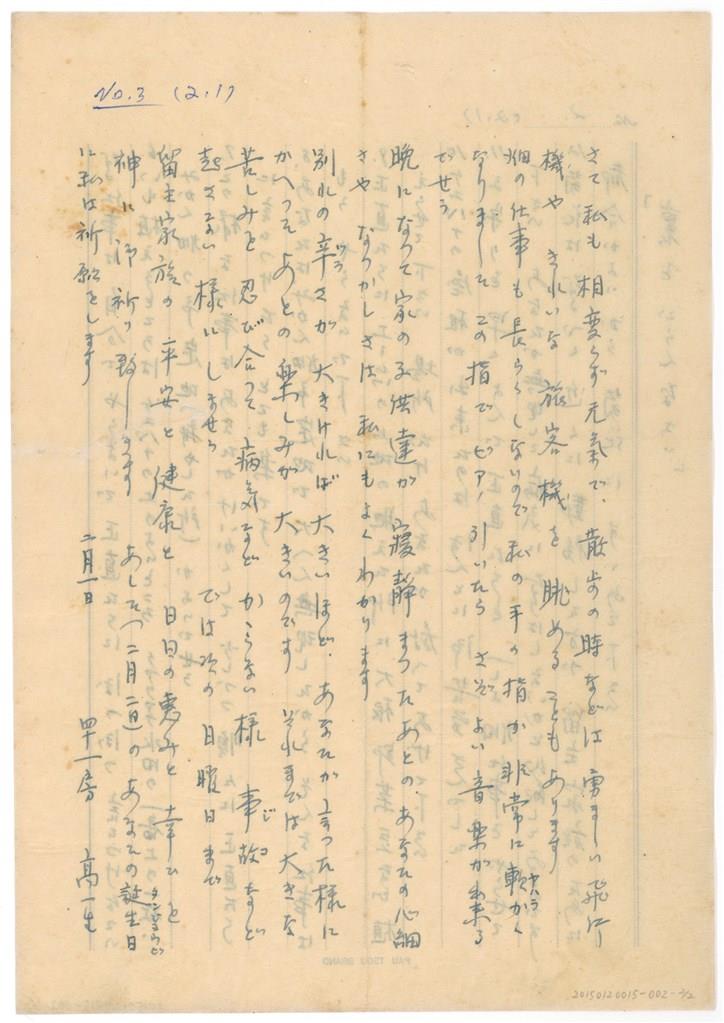 No.3 (2.1)
さて私も相変らず元気で、散歩の時などは勇ましい飛行
機や きれいな旅客機を 眺めることもあります
畑の仕事も長らくしないので私の手の指が非常に軟かく
ヤハラ
なりましてこの指でピアノ引いたら さぞよい音楽が出来る
でせう
晩になって家の子供達が寝静まったあとの、あなたの心細
さや なつかしさは私にもよくわかります
別れの辛さが 大きければ大きいほど、あなたが言った様に
ツラ
かへってあとの楽しみが 大きいのです それまでは大きな
苦しみを忍び合って 病気など かゝらない様 事故など
ジコ
起さない様にしませう では次の日曜日まで
留主家族の平安と健康と 日日の恵みと幸ひを
神に御祈り致します あした(二月二日)のあなたの誕生日
タンジョウビ
に私は祈願をします
二月一日 四十一房 高一生
PAU TSOU BRAND
20150120015-002-2/2